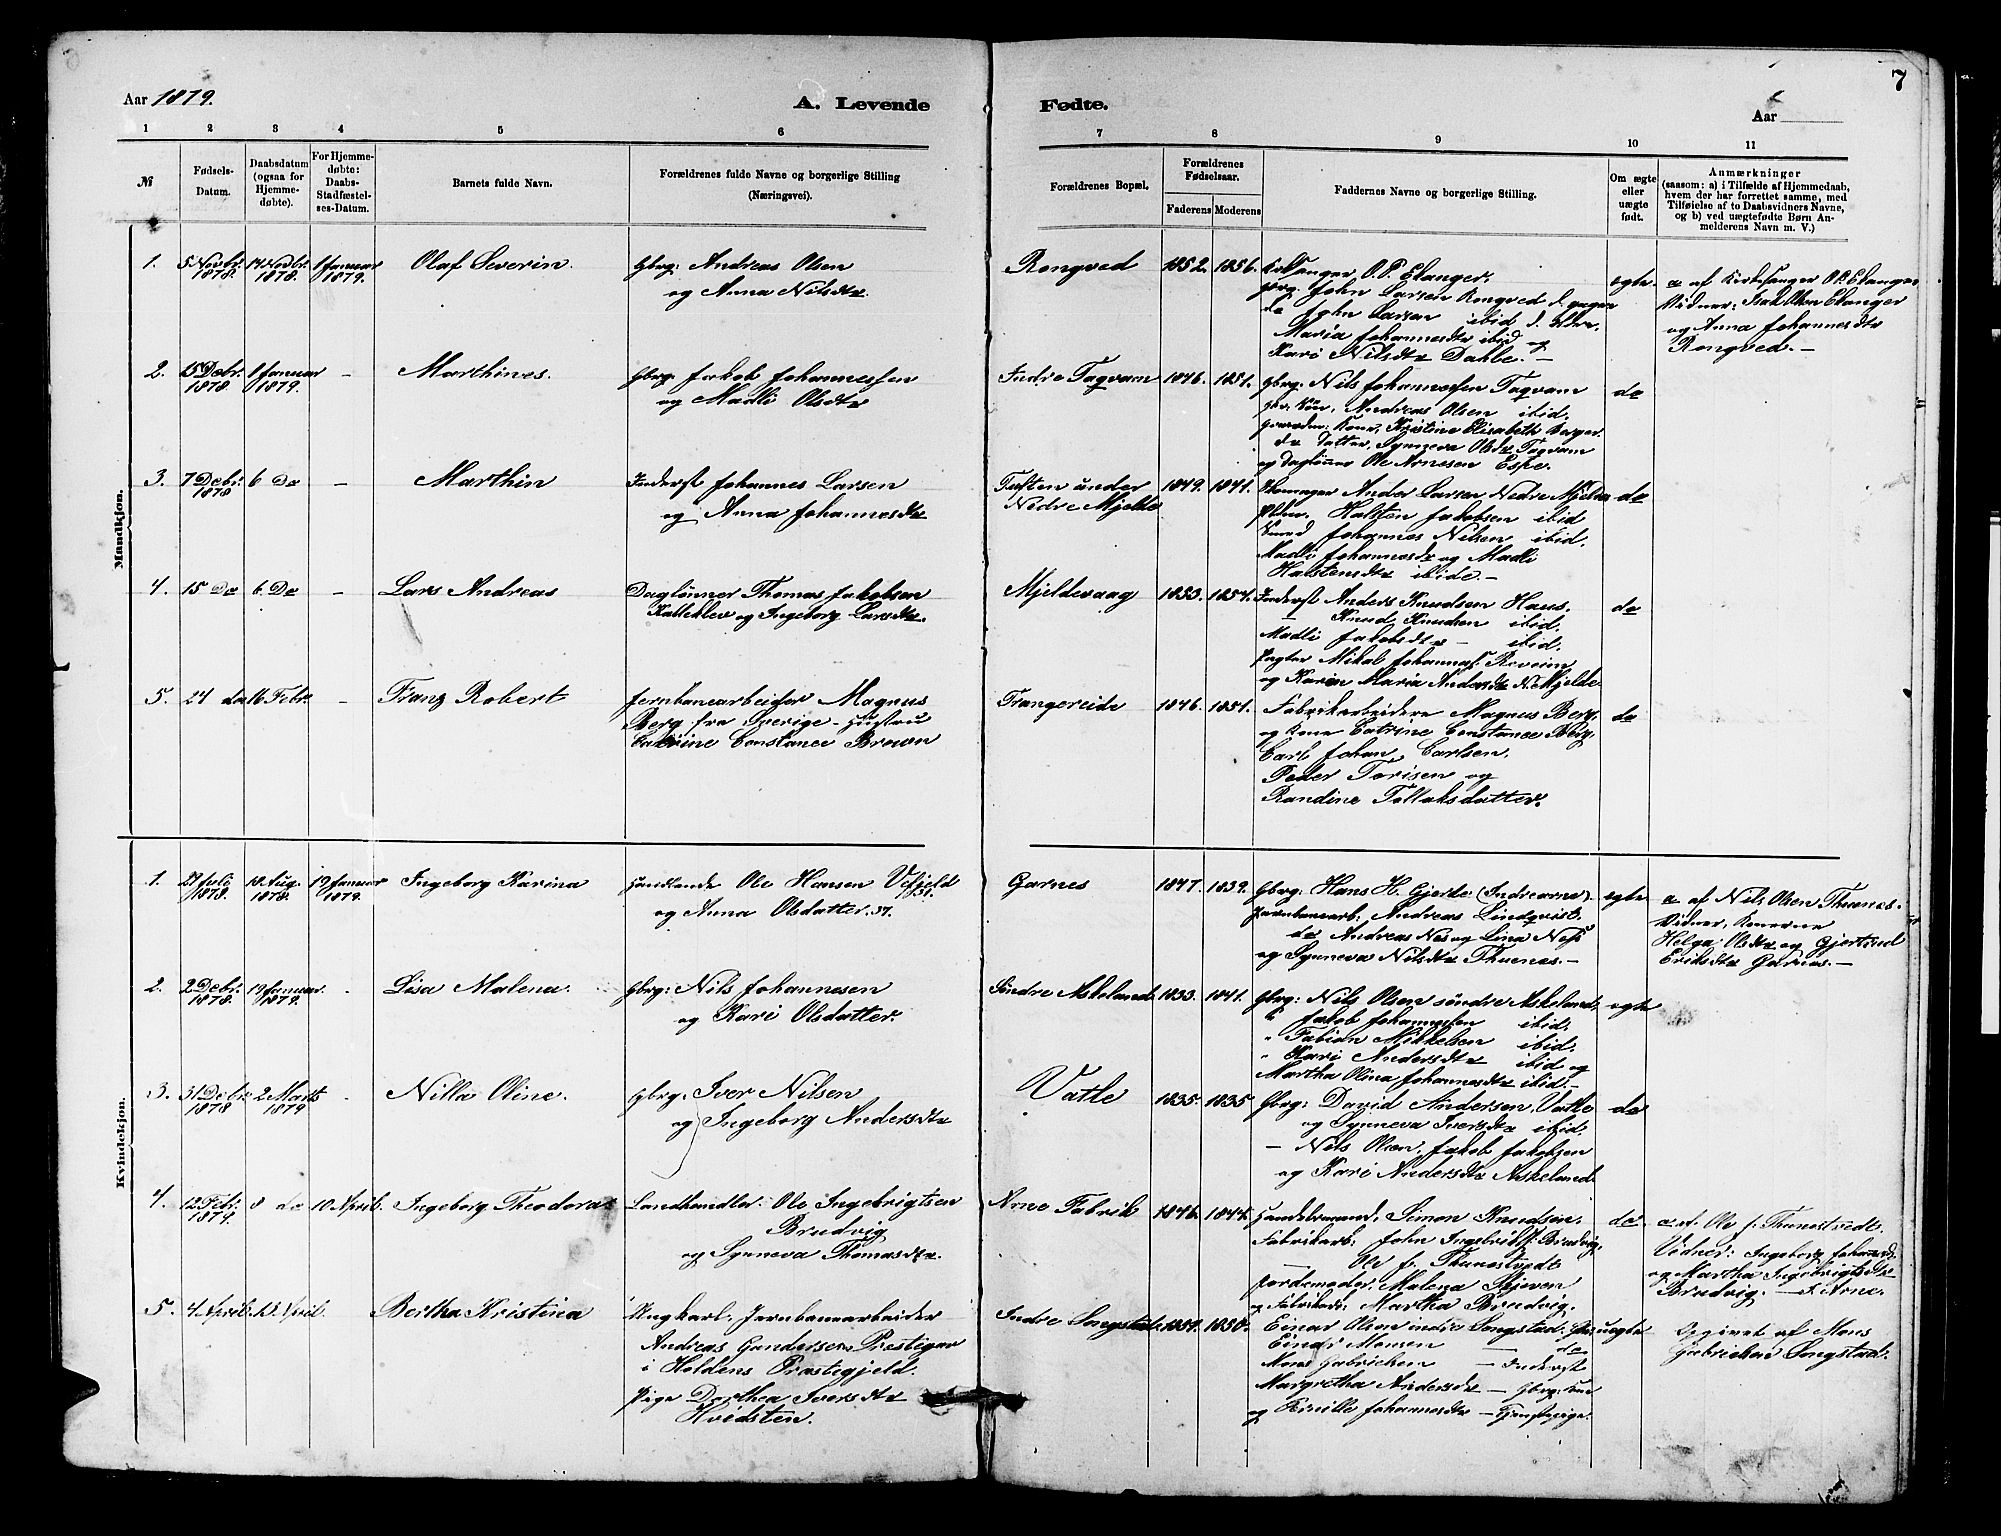 7
Aar 1879.
A. Levende
Fødte.
Aar
1 2 3 4 5 6
7 8 9 10 11
№
Fødsels-
Datum.
Daabsdatum
(ogsaa for
Hjemme-
døbte).
For Hjemme-
døbte:
Daabs-
Stadfæstel-
ses-Datum.
Barnets fulde Navn.
Forældrenes fulde Navne og borgerlige Stilling
(Næringsvei).
Forældrenes Bopæl.
Forældrenes
Fødselsaar.
Faderens Moderens
Faddernes Navne og borgerlige Stilling.
Om ægte
eller
uægte
født.
Anmærkninger
(saasom: a) i Tilfælde af Hjemmedaab,
hvem der har forrettet samme, med
Tilføielse af to Daabsvidners Navne,
og b) ved uægtefødte Børn An-
melderens Navn m. V.)
Mandkjøn.
1. 5 Novbr. 1878. 14 Novbr. 1878. 1 Januar 1879. Olaf Severin. Gbrg: Andreas Olsen
og Anna Nilsdtr.
Rongved 1852. 1856. Kirkesanger O. P. Ekanger.
Gbrg. John Larsen Rongved d. yngre
do John Larsen ibid d. Eldre.
Maria Johannesdtr ibid og
Kari Nilsdtr Dahle. —
egte. a af Kirkesanger O. P. Ekanger
Vidner: Isak Olsen Ekanger
og Anna Johannesdtr
Rongved. —
2. 15 Debr. 1878. 1 Januar 1879. — Marthines. Gbrg. Jakob Johannessen
og Madli Olsdtr
Indre Tagvam 1846. 1851. Gbrg: Nils Johannessen Tagvam
Andreas Olsen ibid.
Kone, Kristine Elisabeth Berger.
do Datter, Synneva Olsdtr Tagvam
og Dagløner Ole Arnesen Espe.
do
3. 7 Debr. 1878 6 Do — Marthin Inderst Johannes Larsen
og Anna Johannesdtr
Tuften under
Nedre Mjelde
1849. 1841. Anders Larsen Nedre Mjelde
Halsten Jakobsen ibid
Johannes Nilsen ibid.
Madli Johannesdtr og Madli
Halstensdtr ibide. —
do
4. 15 Do 6. Do — Lars Andreas Daglönner Thomas Jakobsen
Kalleklev og Ingeborg Larsdtr.
Mjeldevaag 1853. 1854. Inderst Anders Knudsen Haus.
— Knud Knudsen ibid.
Madli Jakobsdtr — ibid.
Pagter Mikal Johannes. Reveim
og Karin Maria Andersdtr N. Mjelde.
do
5. 24 do 16 Febr. — Franz Robert Jernbanearbeider Magnus
Berg fra Sverige — Hustru
Catrine Constance Brown
Trangereide 1846. 1851. Fabrikarbeidere Magnus Berg.
og Kone Catrine Constance Berg.
Carl Johan Carlsen.
Peder Torisen og
Randine Tollaksdatter.
do
Kvindekjøn.
1. 21 Juli 1878. 18 Aug. 1878. 19 Januar 1879. Ingeborg Karina Handlende Ole Hansen Vefjeld
og Anna Olsdatter. 37.
Garnes 1847. 1839. Gbrg: Hans H. Gjerde (Indrearne)
Jernbanearb: Andreas Lindqvist.
do Andreas Nes og Lina Ness
og Synneva Nilsdtr Thunes. —
egte a af Nils Olsen Thunes.
Vidner, Konerne
Helga Olsdtr og Gjertrud
Eriksdtr Garnes. —
2. 2 Debr. 1878. 19 Januar 1879. — Lisa Malena. Gbrg: Nils Johannesen
og Kari Olsdatter.
Söndre Askeland. 1833. 1841. Gbrg: Nils Olsen söndre Askeland
" Jakob Johannessen ibid.
" Fabian Mikkelsen ibid.
" Kari Andersdtr ibid og
Martha Olina Johannesdtr ibid. —
egte
3. 31 Debr. 1878 2 Marts 1879 — Nilla Oline. Gbrg: Iver Nilsen
og Ingeborg Andersdtr
Vatle 1835. 1835 Gbrg: David Andersen, Vatle
og Synneva Iversdtr ibid.
— Nils Olsen, Jakob Jakobsen
og Kari Andersdtr Askeland.
do
4. 12 Febr. 1879. 8 do 10 April. Ingeborg Theodora Landhandler: Ole Ingebrigtsen
Brudvig
og Synneva Thomasdtr.
Arne Fabrik 1846. 1844. Handelsmand, Simon Knudsen.
Fabrikarb: John Ingebrigts. Brudvig.
— Ole J. Thunestvedt
Jordemoder, Malena Skjeven
og Fabrikarb: Martha Brudvig.
do a af. Ole J. Thunestvedt.
Vidner: Ingeborg Johannesd.
og Martha Ingebrigtsdtr
Brudvig. — J. Arne.
5. 4 April. 13. April. Bertha Kristina Ungkarl. Jernbanearbeider
Andreas Gundersen Prestigar
i Holdens Præstegjeld.
Pige Dorthea Iversdtr
Hvidsten.
Indre Songstad. 1851. 1858. Einar Olsen indre Songstad. Gbrg
Eind: Monsen — do
Mons Gabrielsen — Inderst
Margretha Andersdtr — Gbrg:
og Rinille Johannesdtr — Tjenstepige.
uegte Opgivet af Mons
Gabrielsen Songstad.